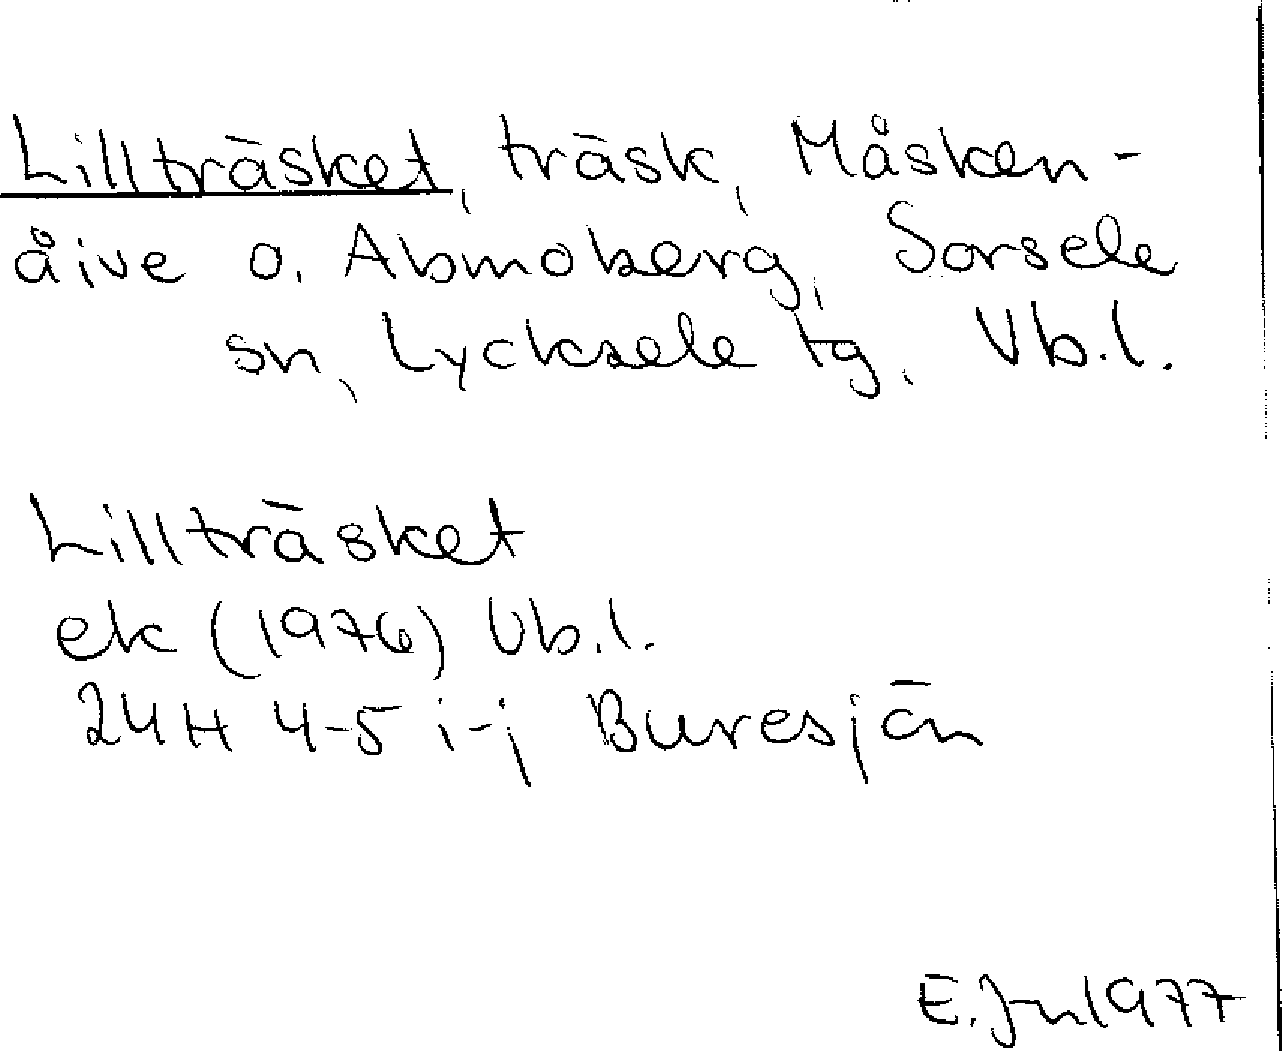 Lillträsket, träsk, Måsken-
åive o. Abmoberg, Sorsele
sn, Lycksele tg. Vb.l.
Lillträsket
ek (1976) Vb.l.
24H 4-5 i-j Buresjön
E. Jn 1977